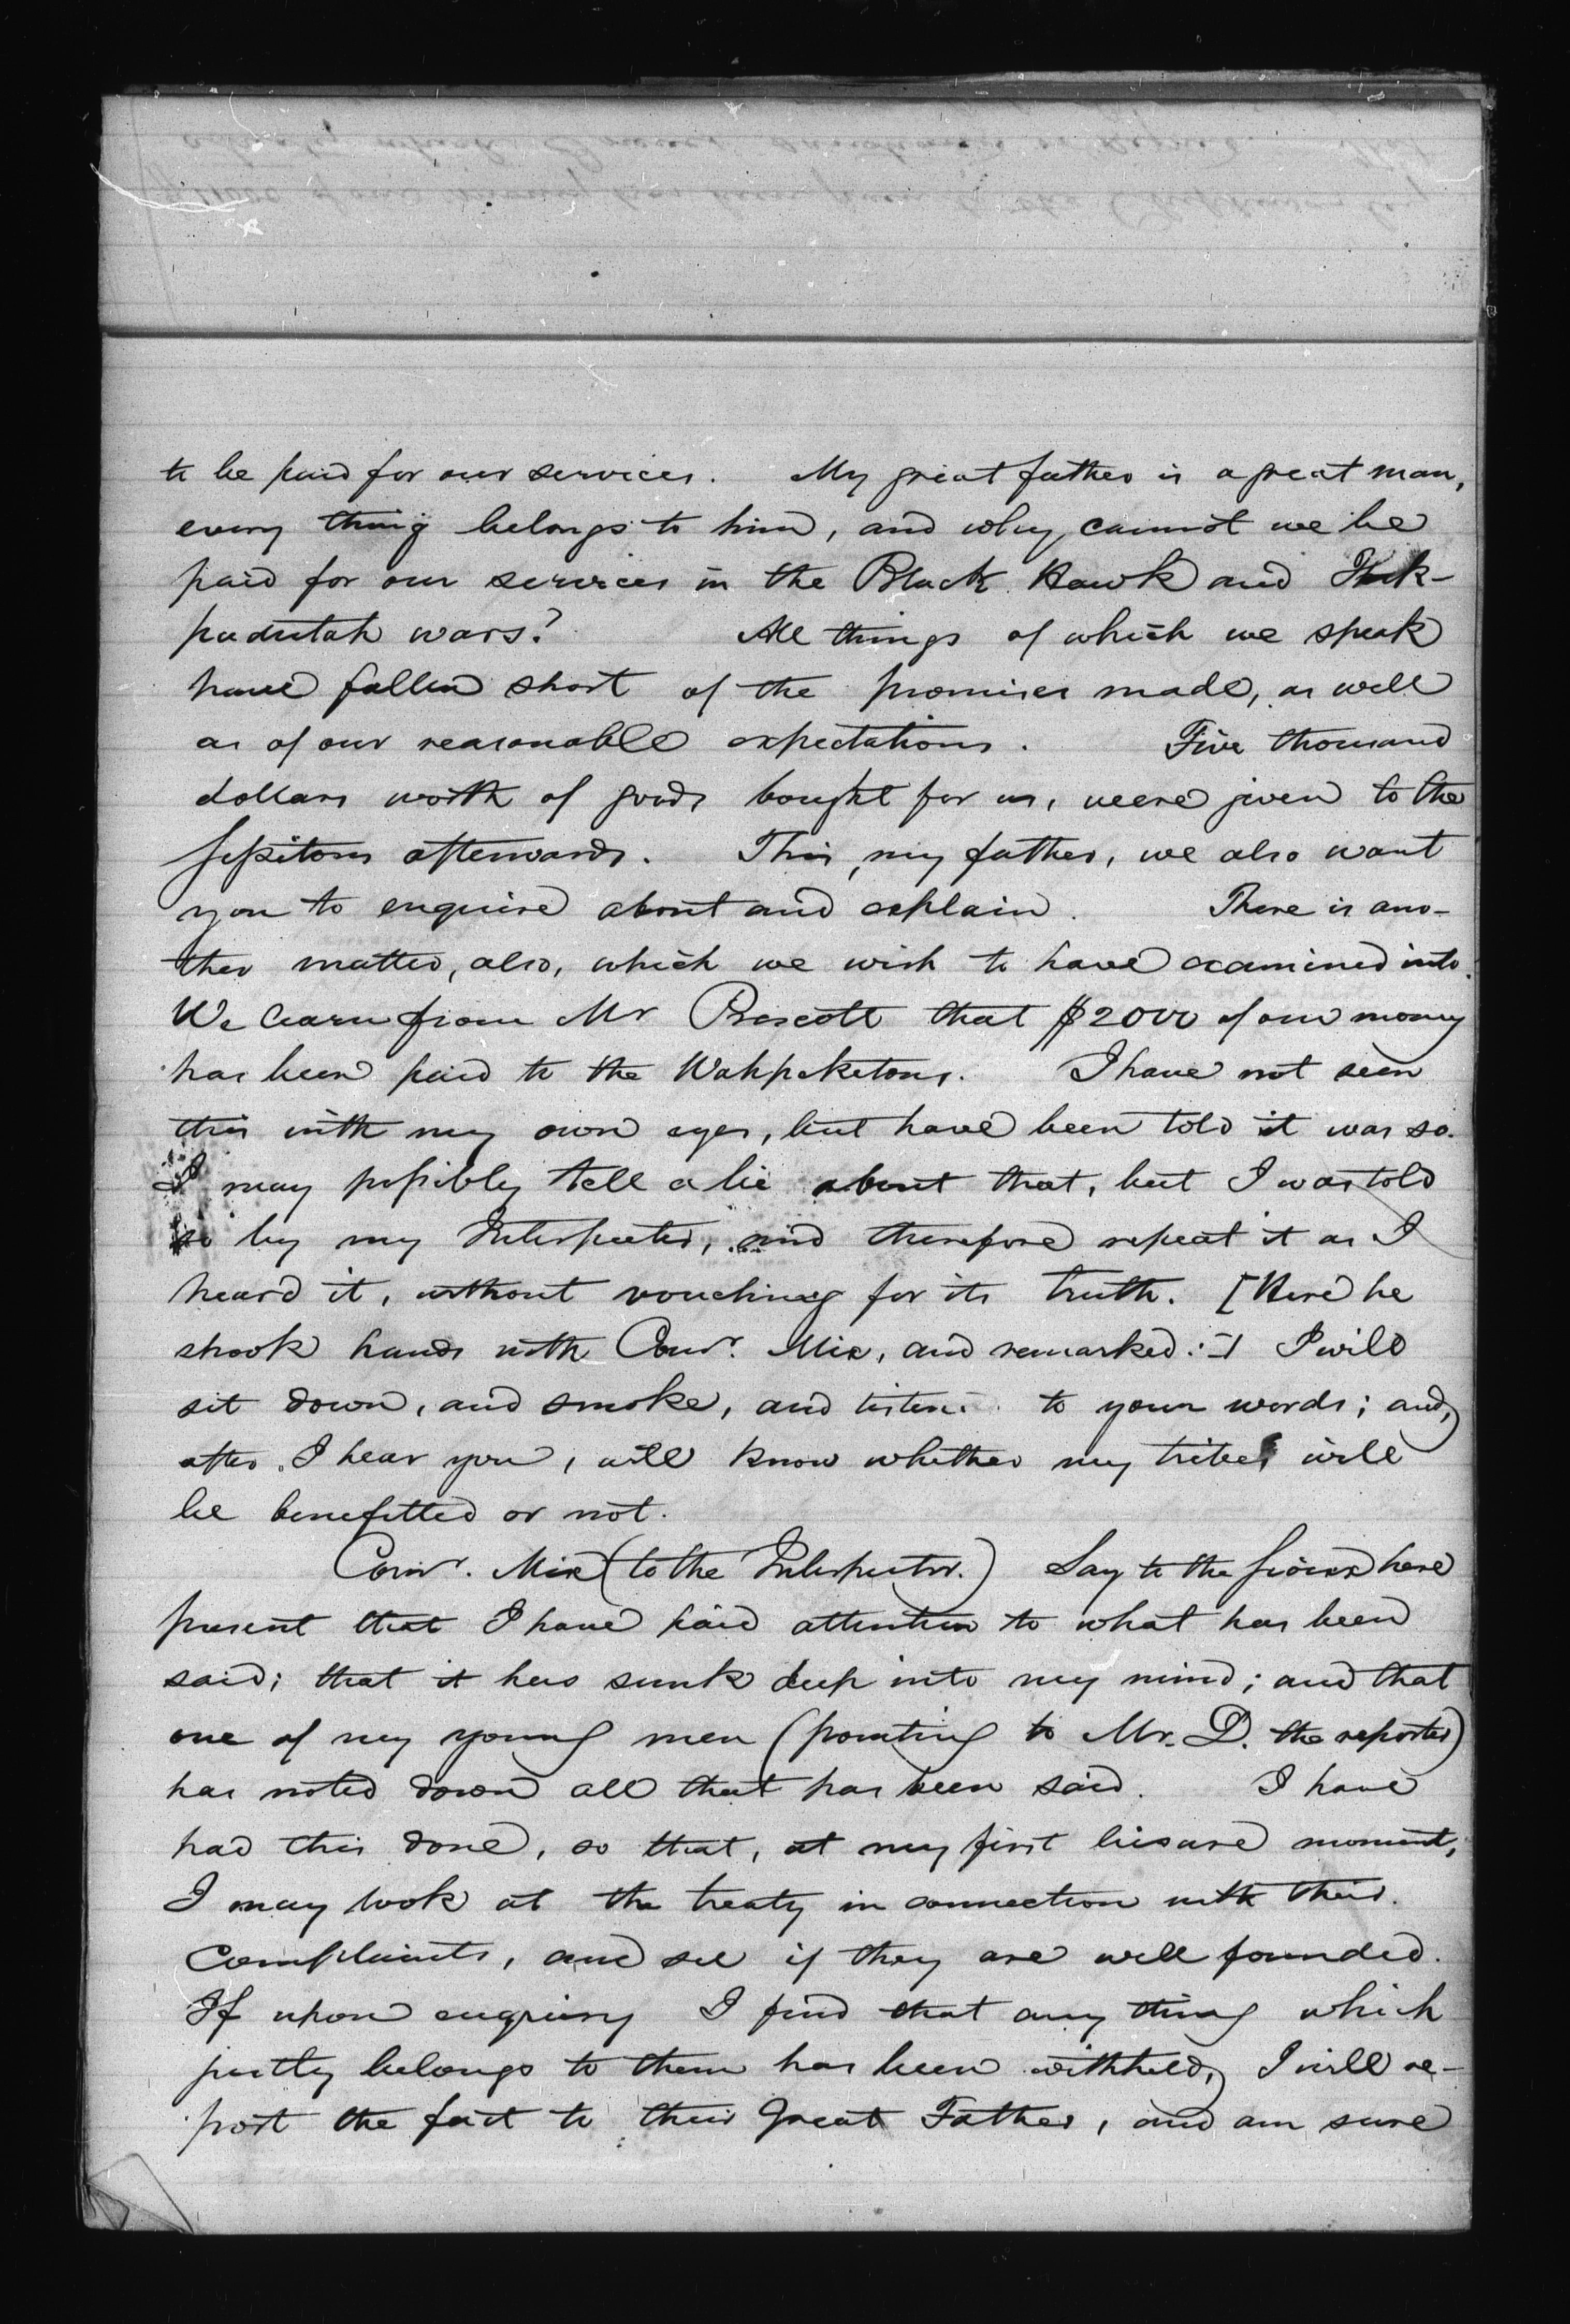 to be paid for our services. My great father is a great man,
every thing belongs to him, and why cannot we be
paid for our services in the Black Hawk and Ink-
padutah wars? All things of which we speak
have fallen short of the promises made, as well
as of our reasonable expectations. Five thousand
dollars worth of goods bought for us, were given to the
Sissitons afterwards. This, my father, we also want
you to enquire about and explain. There is ano-
ther matter, also, which we wish to have examined into.
We learn from Mr Prescott that $2000 of our money
has been paid to the Wahpeketons. I have not seen
this with my own eyes, but have been told it was so.
I may possibly tell a lie about that, but I was told
so by my Interpreter, and therefore repeat it as I
heard it, without vouching for its truth. [Here he
shook hands with Comr. Mix, and remarked:-] I will
sit down, and smoke, and listen to your words; and,
after I hear you, will know whether my tribe will
be benefitted or not.
Comr. Mix (to the Interpreter.) Say to the Sioux here
present that I have paid attention to what has been
said; that it has sunk deep into my mind; and that
one of my young men (pointing to Mr. D. the reporter)
has noted down all that has been said. I have
had this done, so that, at my first leisure moment,
I may look at the treaty in connection with their
complaints, and see if they are well founded.
If upon enquiry I find that any thing which
justly belongs to them has been withheld, I will re-
port the fact to their Great Father, and am sure